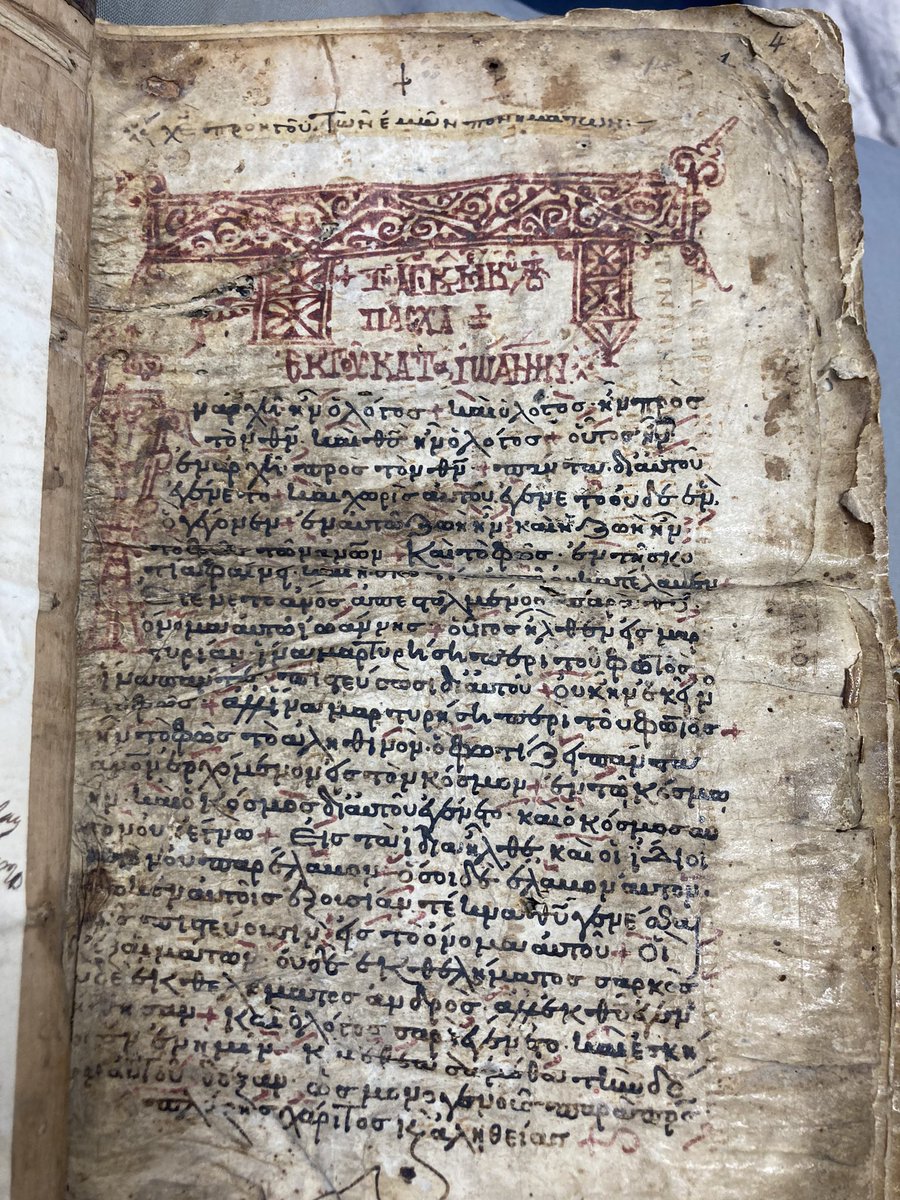 4
1
+
χὲ προηγοῦ τῶν ἐμῶν πονημάτων:
+ Τῇ ἁγ κ μγ κυ
πάσχα +
ἐκ τοῦ κατὰ ἰωάννην
Ἐν ἀρχῇ ἦν ὁ λόγος + καὶ ὁ λόγος ἦν πρὸς
τὸν θν καὶ θς ἦν ὁ λόγος + οὗτος ἦν
ἐν ἀρχῇ πρὸς τὸν θν + πάντα δι αὐτοῦ
ἐγένετο + καὶ χωρὶς αὐτοῦ ἐγένετο οὐδὲ ἕν
ὃ γέγονεν + ἐν αὐτῷ ζωὴ ἦν καὶ ἡ ζωὴ ἦν
τὸ φῶς τῶν ἀνων + Καὶ τὸ φῶς ἐν τῇ σκο
τία φαίνει καὶ ἡ σκο κατέλαβεν
Ἐγένετο ἄνος ἀπεσταλμένος παρὰ θυ
ὄνομα αὐτῷ ἰωάννης + οὗτος ἦλθεν εἰς μαρ
τυρίαν ἵνα μαρτυρήσῃ περὶ τοῦ φωτός
ἵνα πάντες πιστεύσωσι δι αὐτοῦ + οὐκ ἦν ἐκεῖν
τὸ φῶς + ἀλλ ἵνα μαρτυρήσῃ περὶ τοῦ φωτός +
ἦν τὸ φῶς τὸ ἀληθινόν ὃ φωτίζει πάντα
ἄνον ἐρχόμενον εἰς τὸν κόσμον + ἐν τῷ κόσμω
ἦν καὶ ὁ κόσμος δι αὐτοῦ ἐγένετο καὶ ὁ κόσμος αυ
τὸν οὐκ ἔγνω + Εἰς τὰ ἴδια ἦλθε καὶ οἱ ἴδιοι
αὐτὸν οὐ παρέλαβον ὅσοι δὲ ἔλαβον αὐτὸν
αὐτοῖς ἐξουσίαν τέκνα θυ γενέσθαι
τοῖς πιστεύουσιν εἰς τὸ ὄνομα αὐτοῦ + Οἳ
ἐξ αἱμάτων οὐδὲ ἐκ θελήματος σαρκὸς
οὐδὲ ἐκ θελέματος ἀνδρὸς ἀλλ ἐκ θυ ἐγεν
νήθησαν + Καὶ ὁ λόγος σὰρξ ἐγένετο καὶ ἐσκή
νωσεν ἐν ἡμῖν κ ἐθεασάμεθα τὴν δό
ξαν αὐτοῦ δόξαν ὡς μονογενοῦς παρὰ πρς
πλήρης χάριτος κ ἀληθείας +